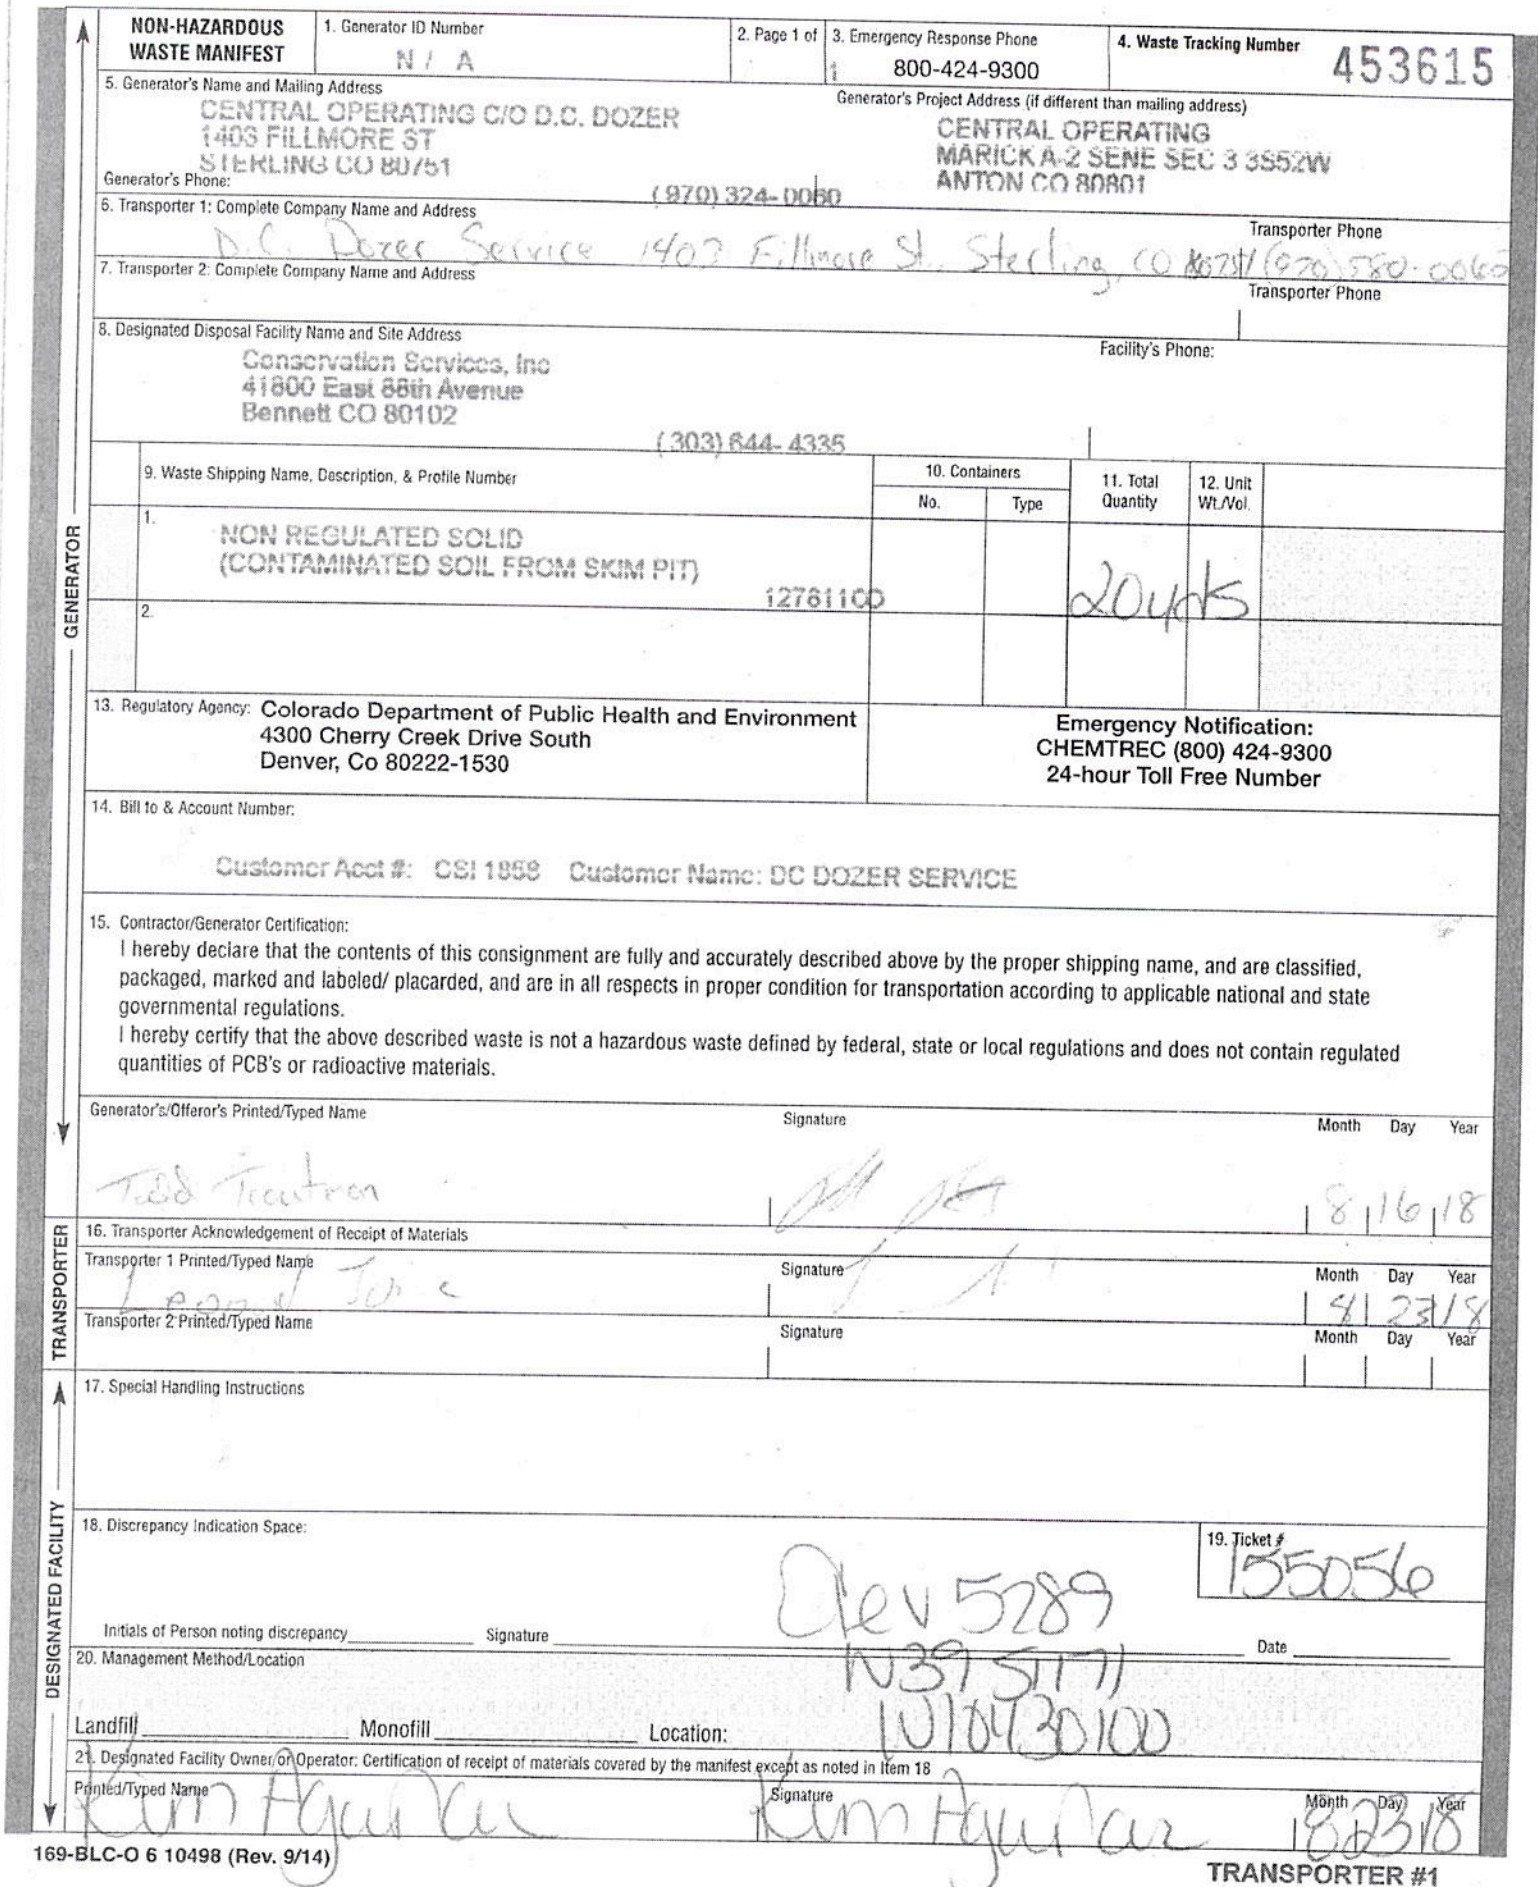 NON-HAZARDOUS WASTE MANIFEST
1. Generator ID Number
N / A
2. Page 1 of
1
3. Emergency Response Phone
800-424-9300
4. Waste Tracking Number
453615
5. Generator's Name and Mailing Address
CENTRAL OPERATING C/O D.C. DOZER
1403 FILLMORE ST
STERLING CO 80751
Generator's Phone:
(970) 324-0060
Generator's Project Address (if different than mailing address)
CENTRAL OPERATING
MARICK A-2 SENE SEC 3 3S52W
ANTON CO 80801
6. Transporter 1: Complete Company Name and Address
Transporter Phone
D.C. Dozer Service 1403 Fillmore St. Sterling, CO 80751 (970) 580-0060
7. Transporter 2: Complete Company Name and Address
Transporter Phone
8. Designated Disposal Facility Name and Site Address
Facility's Phone:
Conservation Services, Inc
41800 East 88th Avenue
Bennett CO 80102
(303) 644-4335
9. Waste Shipping Name, Description, & Profile Number
10. Containers
No.
Type
11. Total Quantity
12. Unit Wt./Vol.
1.
NON REGULATED SOLID
(CONTAMINATED SOIL FROM SKIM PIT)
127811CO
20 yds
2.
13. Regulatory Agency: Colorado Department of Public Health and Environment
4300 Cherry Creek Drive South
Denver, Co 80222-1530
Emergency Notification:
CHEMTREC (800) 424-9300
24-hour Toll Free Number
14. Bill to & Account Number:
Customer Acct #: CSI 1858 Customer Name: DC DOZER SERVICE
15. Contractor/Generator Certification:
I hereby declare that the contents of this consignment are fully and accurately described above by the proper shipping name, and are classified,
packaged, marked and labeled/ placarded, and are in all respects in proper condition for transportation according to applicable national and state
governmental regulations.
I hereby certify that the above described waste is not a hazardous waste defined by federal, state or local regulations and does not contain regulated
quantities of PCB's or radioactive materials.
Generator's/Offeror's Printed/Typed Name
Signature
Month Day Year
Todd
8 16 18
16. Transporter Acknowledgement of Receipt of Materials
Transporter 1 Printed/Typed Name
Signature
Month Day Year
8 23 18
Transporter 2 Printed/Typed Name
Signature
Month Day Year
17. Special Handling Instructions
18. Discrepancy Indication Space:
19. Ticket #
155056
Elev 5289
Initials of Person noting discrepancy
Signature
Date
N39 51171
20. Management Method/Location
W10430100
Landfill
Monofill
Location:
21. Designated Facility Owner/or Operator: Certification of receipt of materials covered by the manifest except as noted in Item 18
Printed/Typed Name
Signature
Month Day Year
Kim Aguilar
Kim Aguilar
8 23 18
169-BLC-O 6 10498 (Rev. 9/14)
TRANSPORTER #1
GENERATOR
TRANSPORTER
DESIGNATED FACILITY